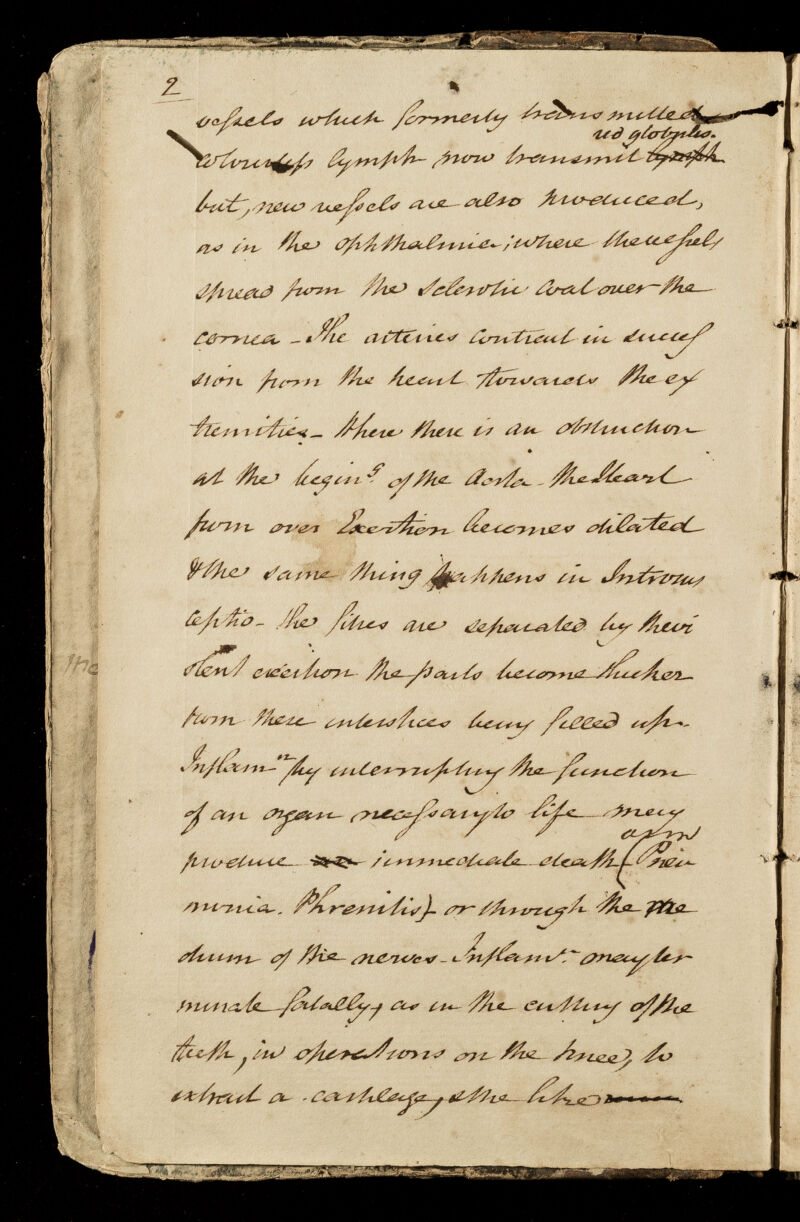 2
vessels which formerly transmitted
red globules.
colourless lymph now transmit lymph
but, new vessels are also produced,
as in the ophthalmia; where the vessels
spread from the Sclerotic Coat over the
cornea - The arteries contract in succes
sion from the heart towards the ex
tremities - Where there is an obstruction
at the begin.g of the Aorta - the Heart
from over Exertion becomes dilated
& the same thing happens in Introsus
ceptio - the fibres are separated by the vi
olent exertion the parts become thicker
from these interstices being filled up -
Inflam.n by interrupting the function
of an organ necessary to life may
as in
produce an immediate death (Pneu
monia. Phrenitis) - or through the me
dium of the nerves - Inflam.n may ter
minate fatally, as in the cutting of the
teeth, in operations on the knee, to
extract a cartilage, & the like
the